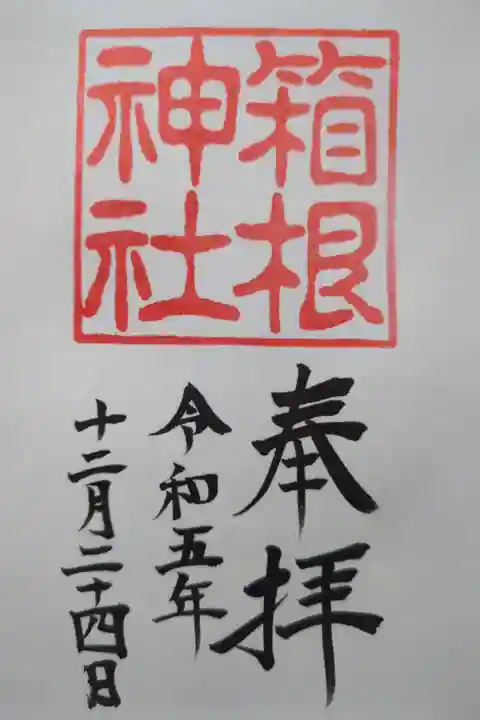 箱根
神社
奉拝
令和五年
十二月二十四日